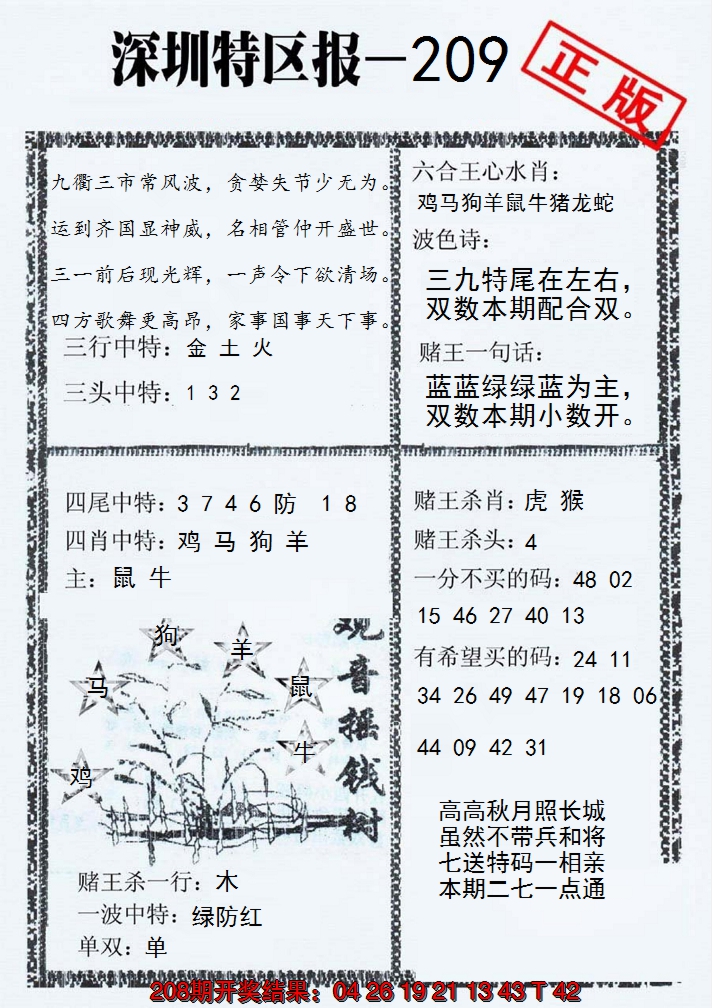 深圳特区报—209
正版
九衢三市常风波，贪婪失节少无为。
运到齐国显神威，名相管仲开盛世。
三一前后现光辉，一声令下欲清场。
四方歌舞更高昂，家事国事天下事。
三行中特：金 土 火
三头中特：1 3 2
六合王心水肖：
鸡马狗羊鼠牛猪龙蛇
波色诗：
三九特尾在左右，
双数本期配合双。
赌王一句话：
蓝蓝绿绿蓝为主，
双数本期小数开。
四尾中特：3 7 4 6 防 1 8
四肖中特：鸡 马 狗 羊
主：鼠 牛
狗
羊
马
鼠
牛
鸡
观音摇钱树
赌王杀一行：木
一波中特：绿防红
单双：单
赌王杀肖：虎 猴
赌王杀头：4
一分不买的码：48 02
15 46 27 40 13
有希望买的码：24 11
34 26 49 47 19 18 06
44 09 42 31
高高秋月照长城
虽然不带兵和将
七送特码一相亲
本期二七一点通
208期开奖结果：04 26 19 21 13 43 T 42